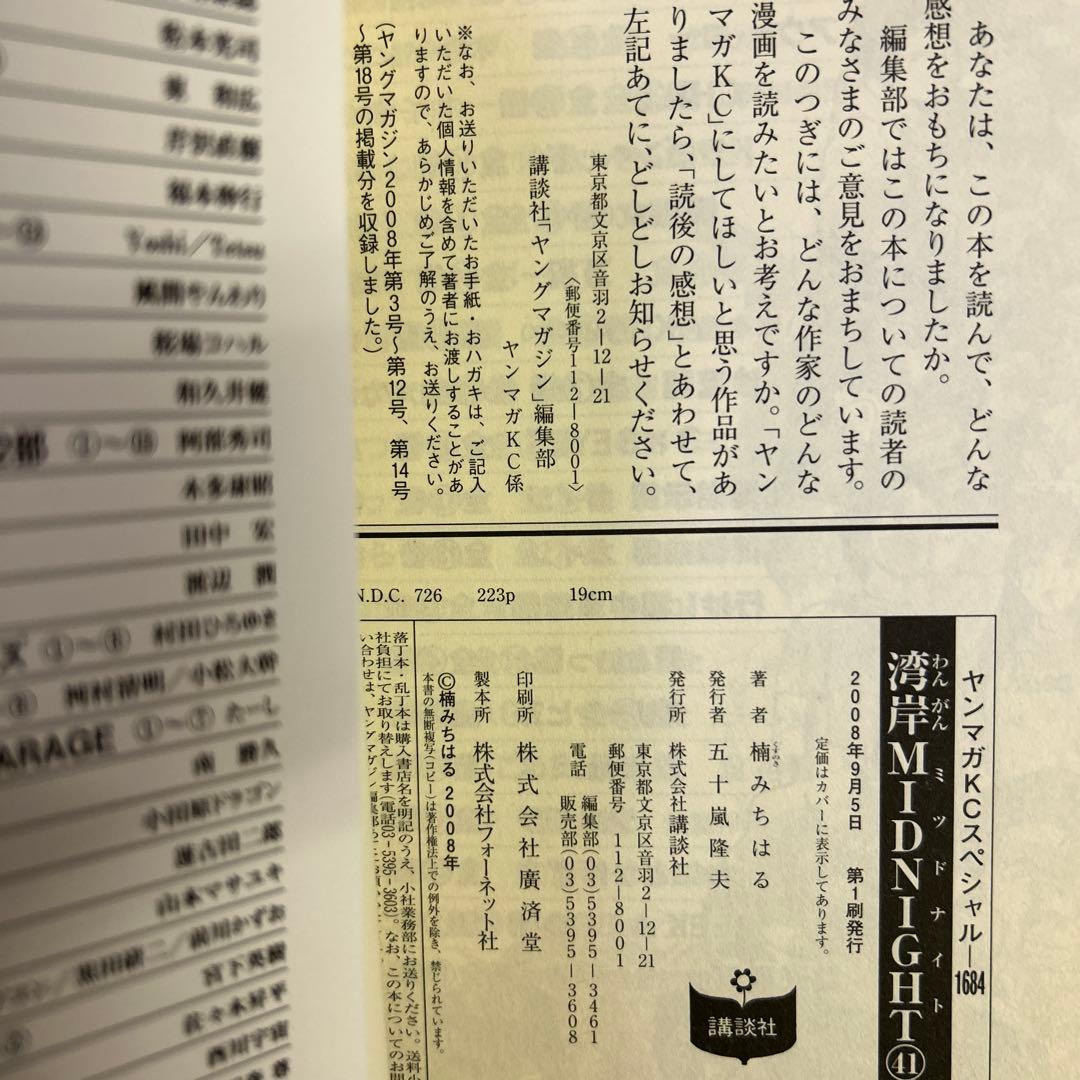 あなたは、この本を読んで、どんな
感想をおもちになりましたか。
編集部ではこの本についての読者の
みなさまのご意見をおまちしています。
このつぎには、どんな作家のどんな
漫画を読みたいとお考えですか。「ヤン
マガKC」にしてほしいと思う作品があ
りましたら、「読後の感想」とあわせて、
左記あてに、どしどしお知らせください。
東京都文京区音羽2―12―21
〈郵便番号112―8001〉
講談社「ヤングマガジン」編集部
ヤンマガKC係
※なお、お送りいただいたお手紙・おハガキは、ご記入
いただいた個人情報を含めて著者にお渡しすることがあ
りますので、あらかじめご了解のうえ、お送りください。
(ヤングマガジン2008年第3号~第12号、第14号
~第18号の掲載分を収録しました。)
N.D.C. 726 223p 19cm
ヤンマガKCスペシャル―1684
湾岸MIDNIGHT㊶
わんがんミッドナイト
2008年9月5日 第1刷発行
定価はカバーに表示してあります。
著者 楠みちはる
くすのき
発行者 五十嵐隆夫
発行所 株式会社講談社
東京都文京区音羽2―12―21
郵便番号 112―8001
電話 編集部(03)5395―3461
販売部(03)5395―3608
講談社
印刷所 株式会社廣済堂
製本所 株式会社フォーネット社
©楠みちはる 2008年
本書の無断複写(コピー)は著作権法上での例外を除き、禁じられています。
落丁本・乱丁本は購入書店名を明記のうえ、小社業務部にお送りください。送料小
社負担にてお取り替えします(電話03-5395-3603)。なお、この本についてのお問
い合わせは、ヤングマガジン編集部
Yoshi/Tetsu
和久井健
①~⑬ 阿部秀司
木多康昭
田中 宏
渡辺 潤
ズ ①~⑧ 村田ひろゆき
岡村賢明/小松大幹
ARAGE ①~⑦ たーし
南 勝久
小田原ドラゴン
蓮古田二郎
山本マサユキ
前川かずお
宮下英樹
佐々木好平
西川宇宙